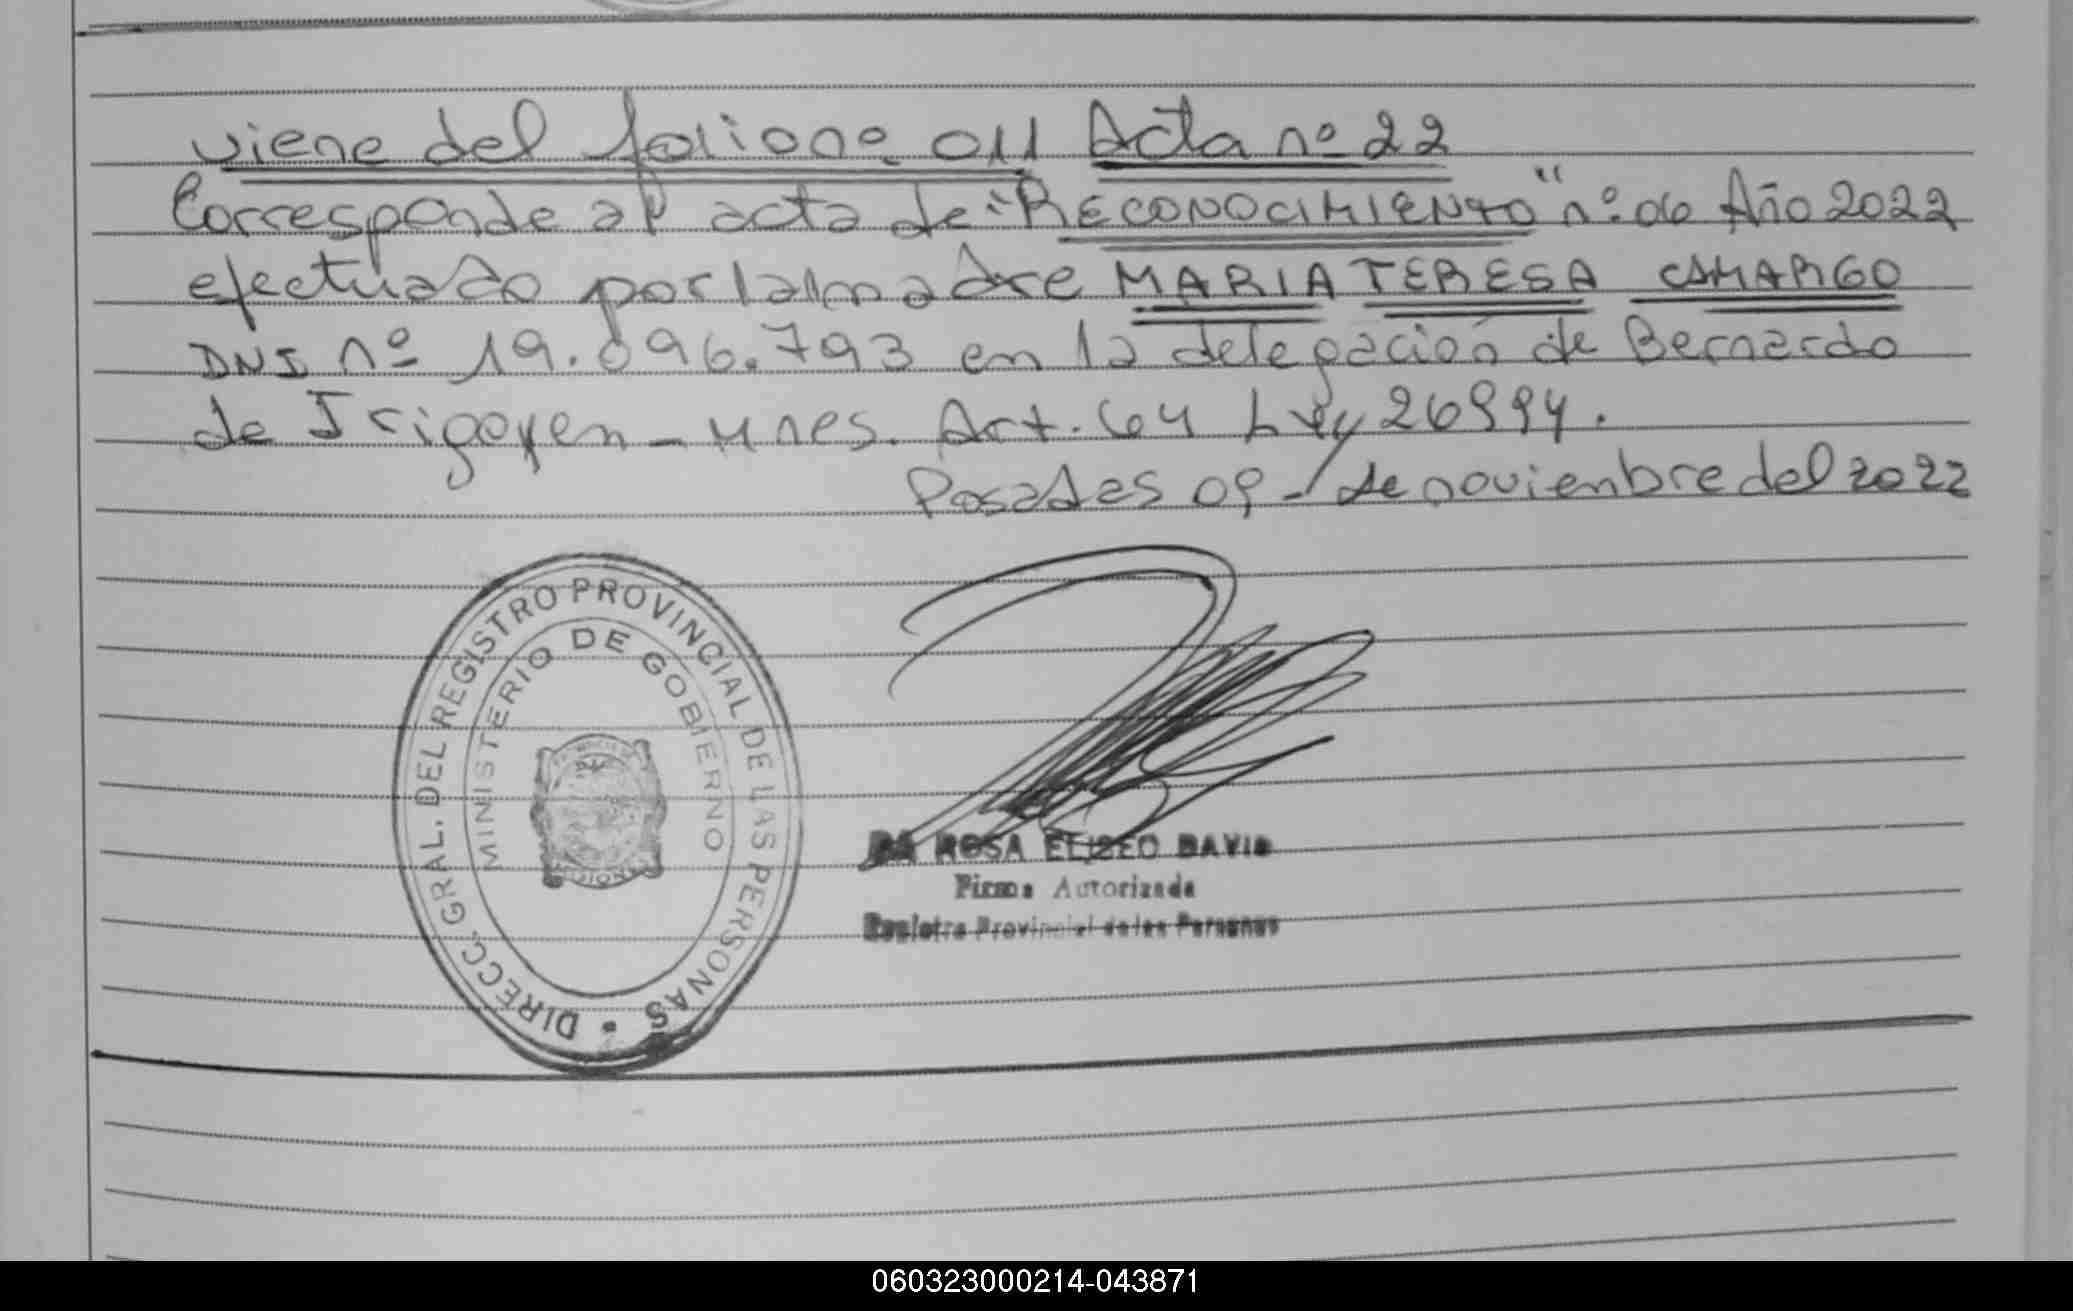 viene del folio nº 011 Acta nº 22
Corresponde al acta de "RECONOCIMIENTO" nº 06 Año 2022
efectuado por la madre MARIA TERESA CAMARGO
DNI nº 19.096.793 en la delegación de Bernardo
de Irigoyen - Mnes. Art. 64 Ley 26994.
Posadas 09 - de noviembre del 2022
DIRECC. GRAL. DEL REGISTRO PROVINCIAL DE LAS PERSONAS
MINISTERIO DE GOBIERNO
MISIONES
DA ROSA ELISEO DAVID
Firma Autorizada
Registro Provincial de las Personas
060323000214-043871